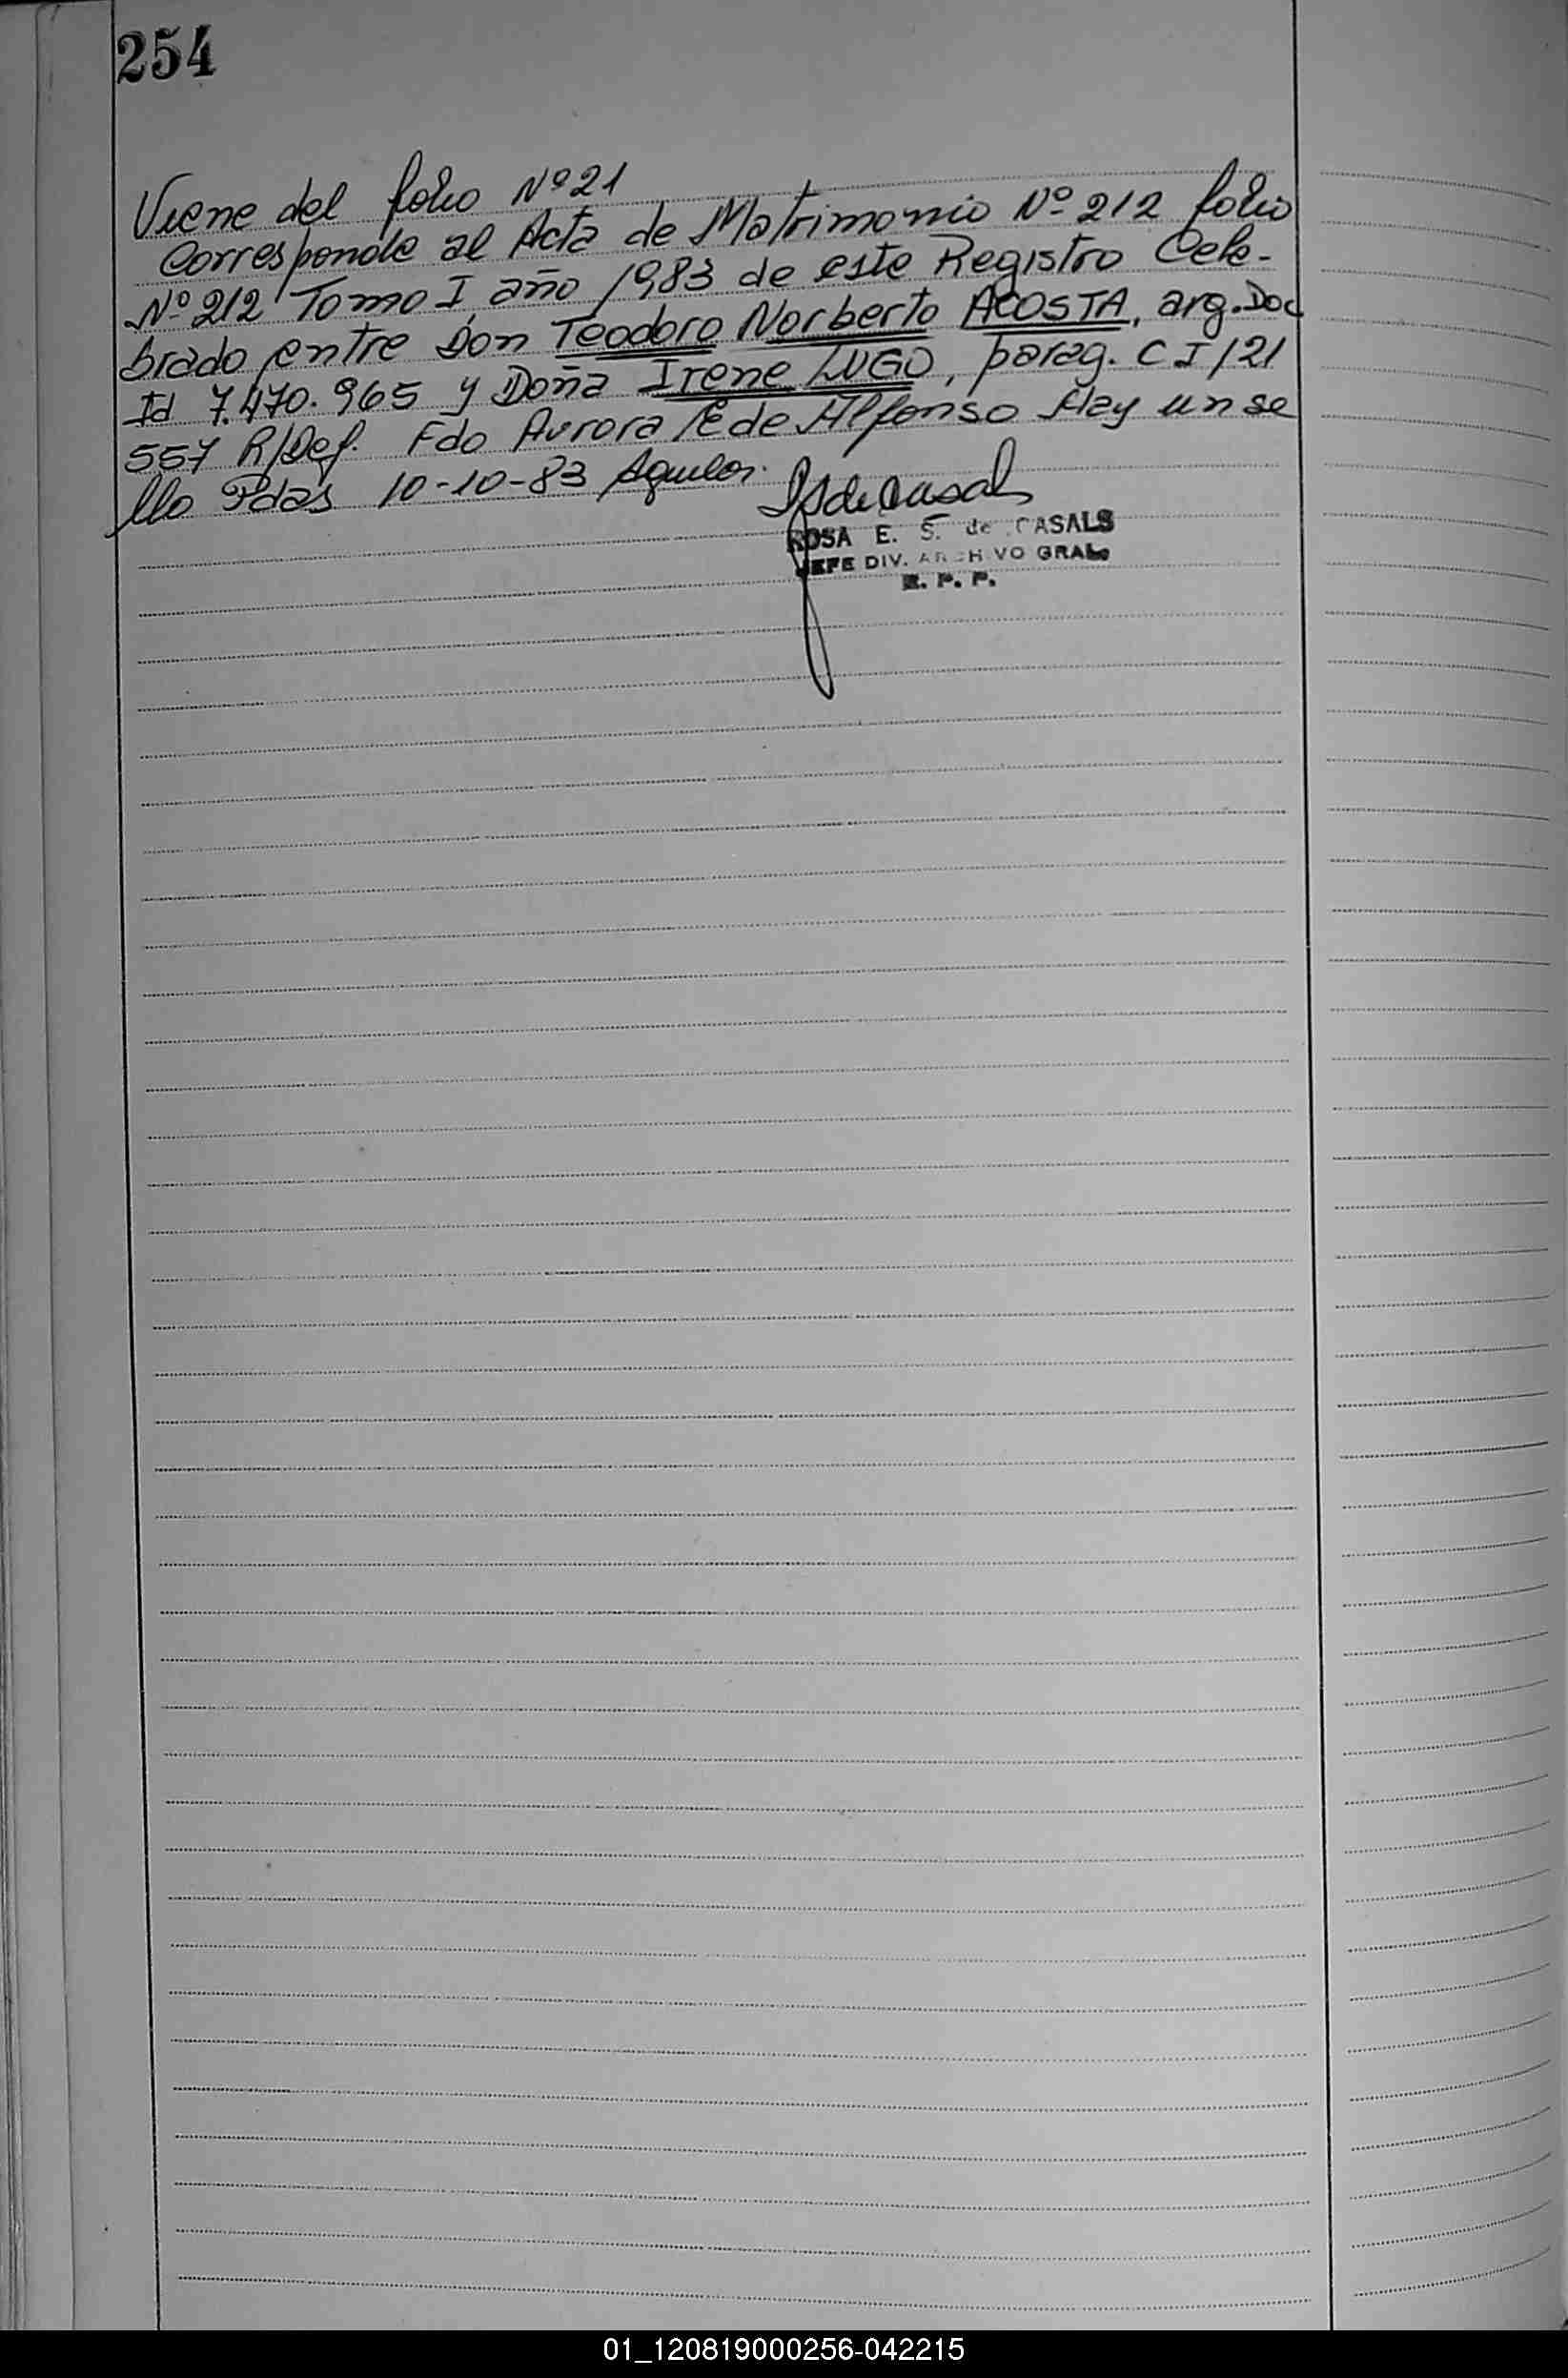 254
Viene del folio Nº 21
Corresponde al Acta de Matrimonio Nº 212 folio
Nº 212 Tomo I, año 1983 de este Registro Cele-
brado entre Don Teodoro Norberto ACOSTA, arg. Doc
Id 7.470.965 y Doña Irene LUGO, parag. C I / 21
557 R/Def. Fdo Aurora E de Alfonso Hay un se
llo Pdas 10-10-83 Aguilar.
ROSA E. S. de CASALS
JEFE DIV. ARCHIVO GRAL.
R. P. P.
01_120819000256-042215